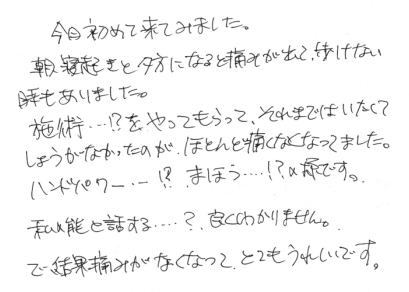 今日初めて来てみました。
朝、寝起きと夕方になると痛みが出て、歩けない
時もありました。
施術…!?をやってもらって、それまではいたくて
しょうがなかったのが、ほとんど痛くなくなってました。
ハンドパワー…!? まほう…!? の様です。
と話する…? 良くわかりません。
で、結果痛みがなくなって、とてもうれしいです。